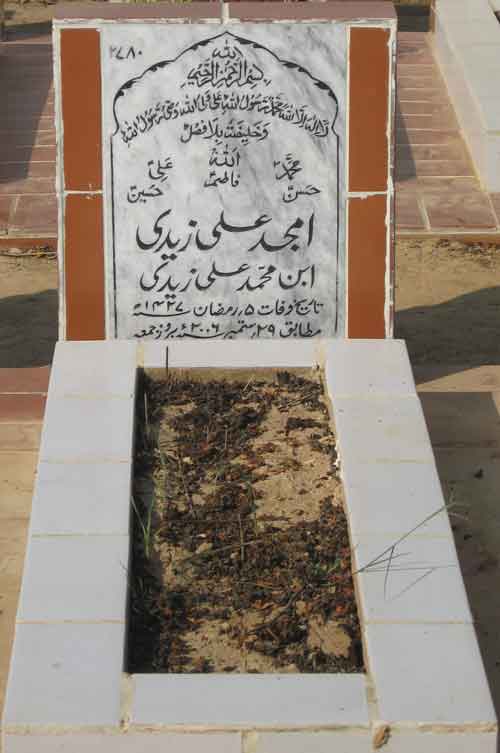 ۷۸۰
اللہ
بسم اللہ الرحمن الرحیم
لا الہ الا اللہ محمد رسول اللہ علی ولی اللہ وصی رسول اللہ
وخلیفتہ بلا فصل
محمد اللہ علی
حسن فاطمہ حسین
امجد علی زیدی
ابن محمد علی زیدی
تاریخ وفات ۵؍رمضان ۱۴۲۷ھ
مطابق ۲۹؍ستمبر ۲۰۰۶ء بروز جمعہ